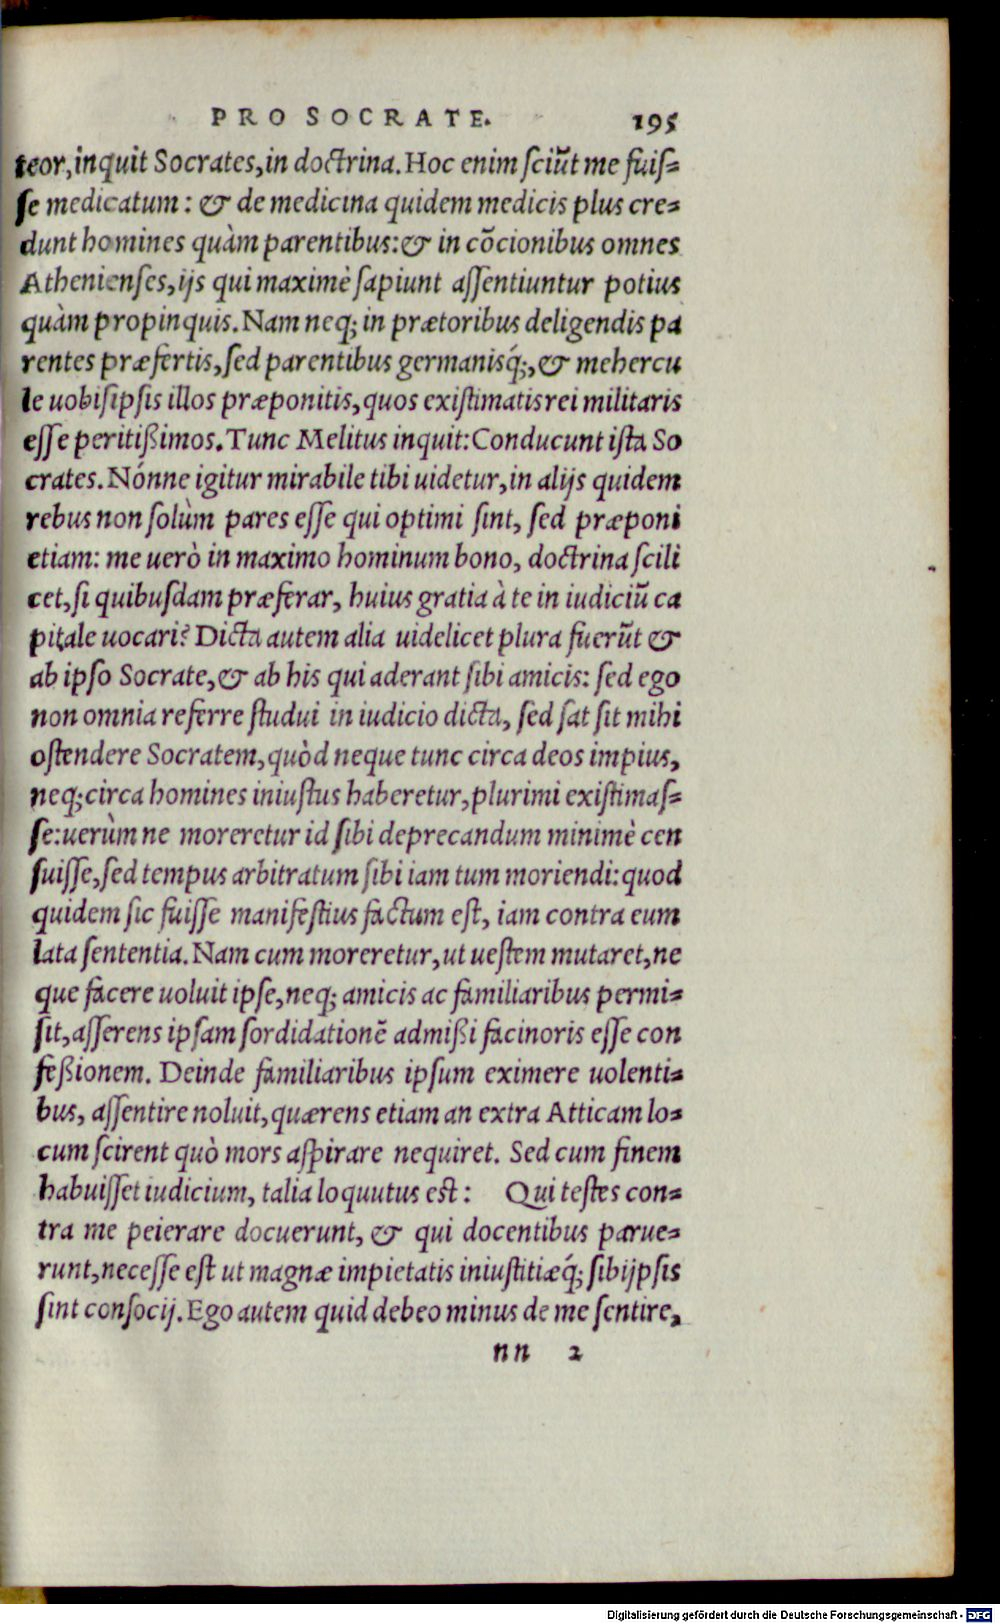 PRO SOCRATE. 195
teor, inquit Socrates, in doctrina. Hoc enim sciũt me fuis-
se medicatum: & de medicina quidem medicis plus cre-
dunt homines quàm parentibus: & in cõcionibus omnes
Athenienses, ijs qui maximè sapiunt assentiuntur potius
quàm propinquis. Nam neq; in prætoribus deligendis pa
rentes præfertis, sed parentibus germanisq́;, & mehercu
le uobisipsis illos præponitis, quos existimatis rei militaris
esse peritißimos. Tunc Melitus inquit: Conducunt ista So
crates. Nónne igitur mirabile tibi uidetur, in alijs quidem
rebus non solùm pares esse qui optimi sint, sed præponi
etiam: me uerò in maximo hominum bono, doctrina scili
cet, si quibusdam præferar, huius gratia à te in iudiciũ ca
pitale uocari? Dicta autem alia uidelicet plura fuerũt &
ab ipso Socrate, & ab his qui aderant sibi amicis: sed ego
non omnia referre studui in iudicio dicta, sed sat sit mihi
ostendere Socratem, quòd neque tunc circa deos impius,
neq; circa homines iniustus haberetur, plurimi existimas-
se: uerùm ne moreretur id sibi deprecandum minimè cen
suisse, sed tempus arbitratum sibi iam tum moriendi: quod
quidem sic fuisse manifestius factum est, iam contra eum
lata sententia. Nam cum moreretur, ut uestem mutaret, ne
que facere uoluit ipse, neq; amicis ac familiaribus permi-
sit, asserens ipsam sordidationẽ admißi facinoris esse con
feßionem. Deinde familiaribus ipsum eximere uolenti-
bus, assentire noluit, quærens etiam an extra Atticam lo-
cum scirent quò mors aspirare nequiret. Sed cum finem
habuisset iudicium, talia loquutus est: Qui testes con-
tra me peierare docuerunt, & qui docentibus parue-
runt, necesse est ut magnæ impietatis iniustitiæq́; sibijpsis
sint consocij. Ego autem quid debeo minus de me sentire,
nn 2
Digitalisierung gefördert durch die Deutsche Forschungsgemeinschaft - DFG